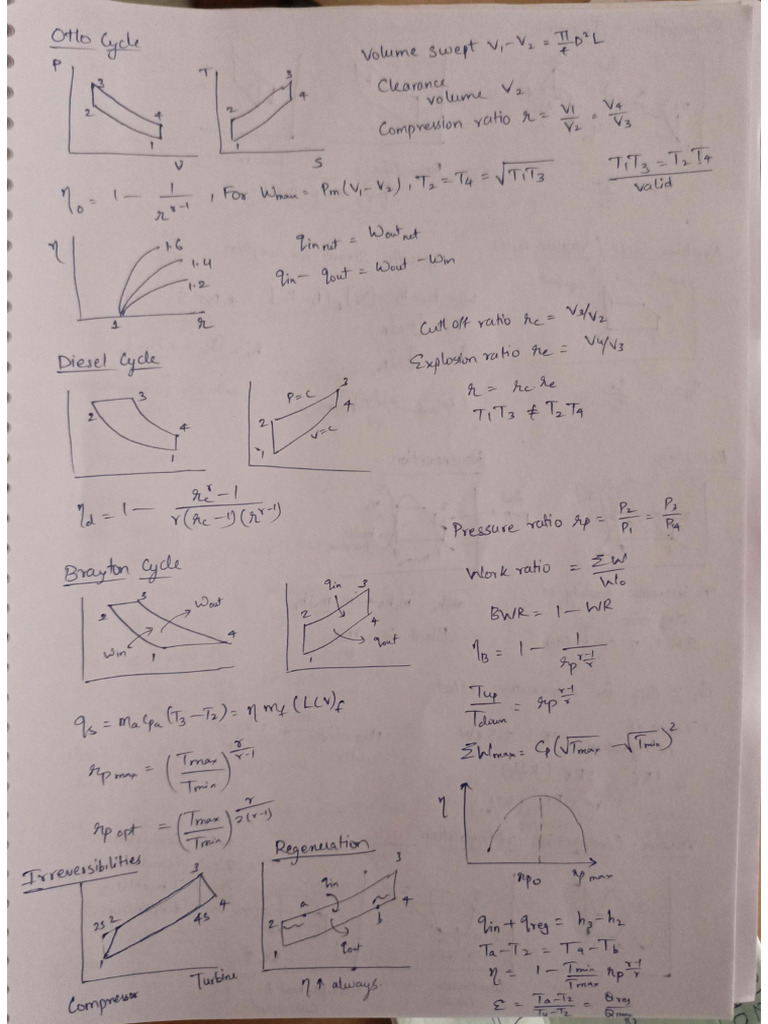 Otto Cycle
P
3
2
4
1
V
T
3
2
4
1
S
Volume swept V₁-V₂ = π/4 D²L
Clearance volume V₂
Compression ratio r = V₁/V₂ = V₄/V₃
η₀ = 1 - 1/r^(γ-1) , For Wmax = Pm(V₁-V₂), T₂' = T₄ = √T₁T₃
T₁T₃ = T₂T₄
valid
η
1.6
1.4
1.2
1
r
qin net = Wout net
qin - qout = Wout - Win
Cut off ratio rc = V₃/V₂
Explosion ratio re = V₄/V₃
r = rc re
T₁T₃ ≠ T₂T₄
Diesel Cycle
2
3
4
1
P=C
3
2
4
V=C
1
ηd = 1 - (rc^γ - 1)/(γ(rc-1)(r^(γ-1))
Pressure ratio rp = P₂/P₁ = P₃/P₄
Work ratio = ΣW/W
BWR = 1 - WR
ηB = 1 - 1/rp^((γ-1)/γ)
Tup/Tdown = rp^((γ-1)/γ)
ΣWmax = Cp(√Tmax - √Tmin)²
Brayton Cycle
2
3
Wout
Win
1
4
qin
3
2
4
qout
1
qs = ma cpa (T₃-T₂) = η mf (LCV)f
rp max = (Tmax/Tmin)^(γ/(γ-1))
rp opt = (Tmax/Tmin)^(γ/2(γ-1))
η
rpo
rp max
Irreversibilities
3
2s 2
4s
4
1
Compressor
Turbine
Regeneration
qin
3
a
2
b
4
1
qout
η ↑ always.
qin + qreg = h₃-h₂
Ta-T₂ = T₄-Tb
η = 1 - Tmin/Tmax rp^((γ-1)/γ)
ε = (Ta-T₂)/(T₄-T₂) = Qreg/